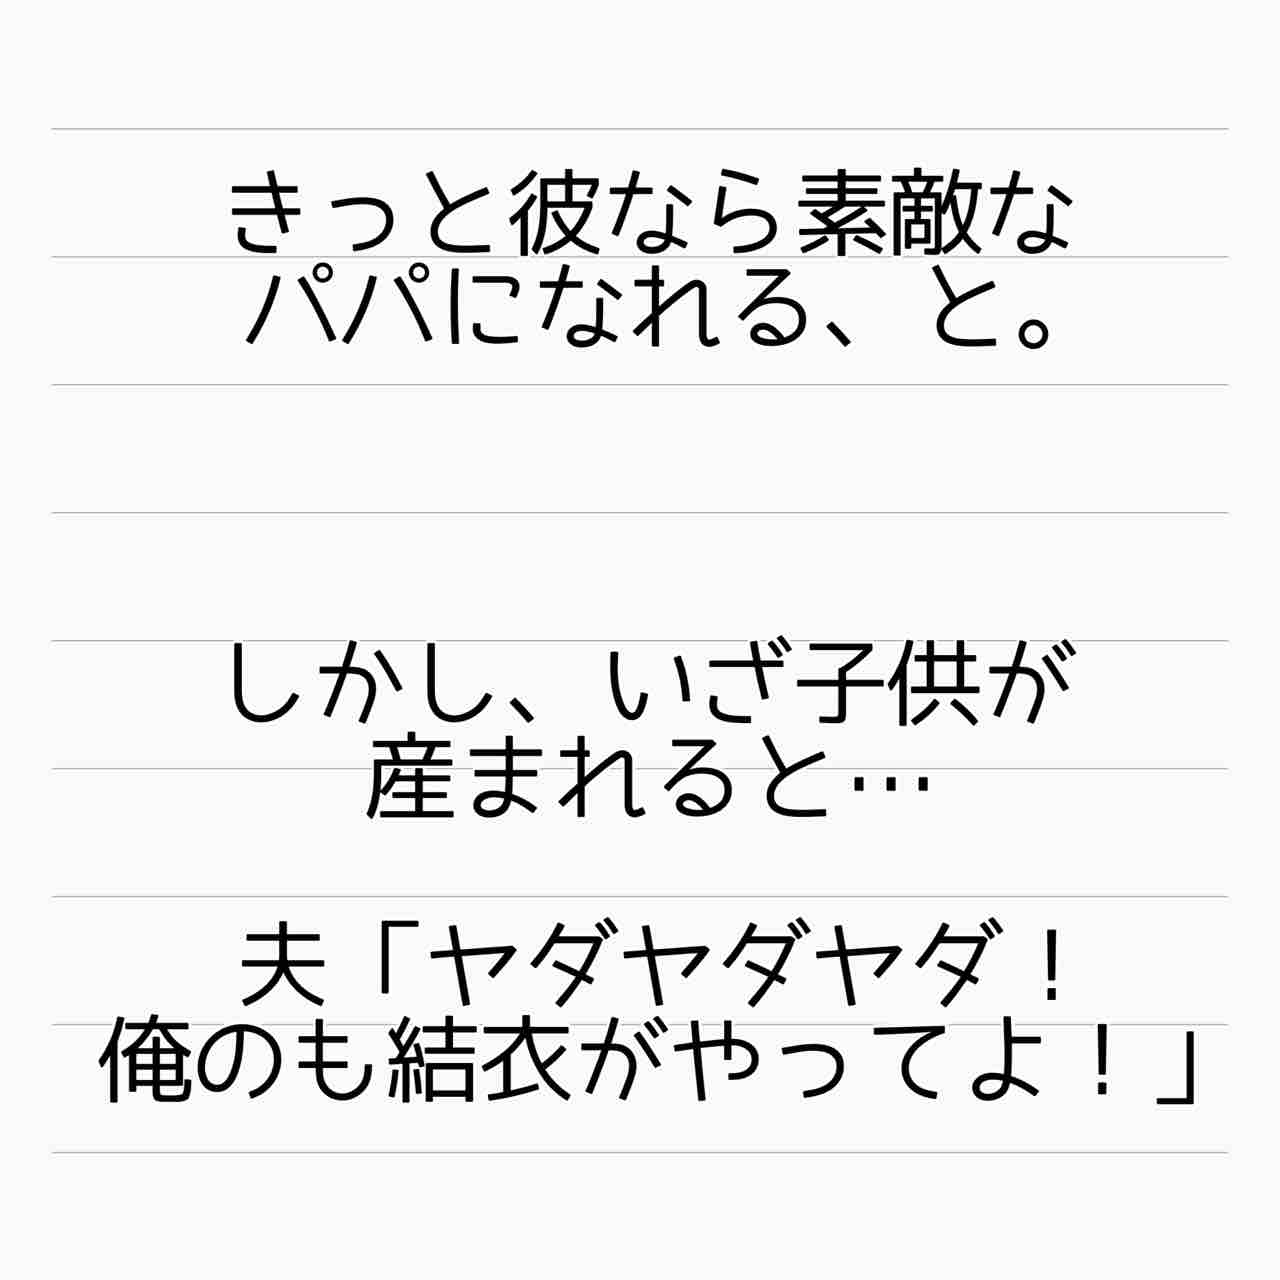 きっと彼なら素敵な
パパになれる、と。
しかし、いざ子供が
産まれると…
夫「ヤダヤダヤダ！
俺のも結衣がやってよ！」